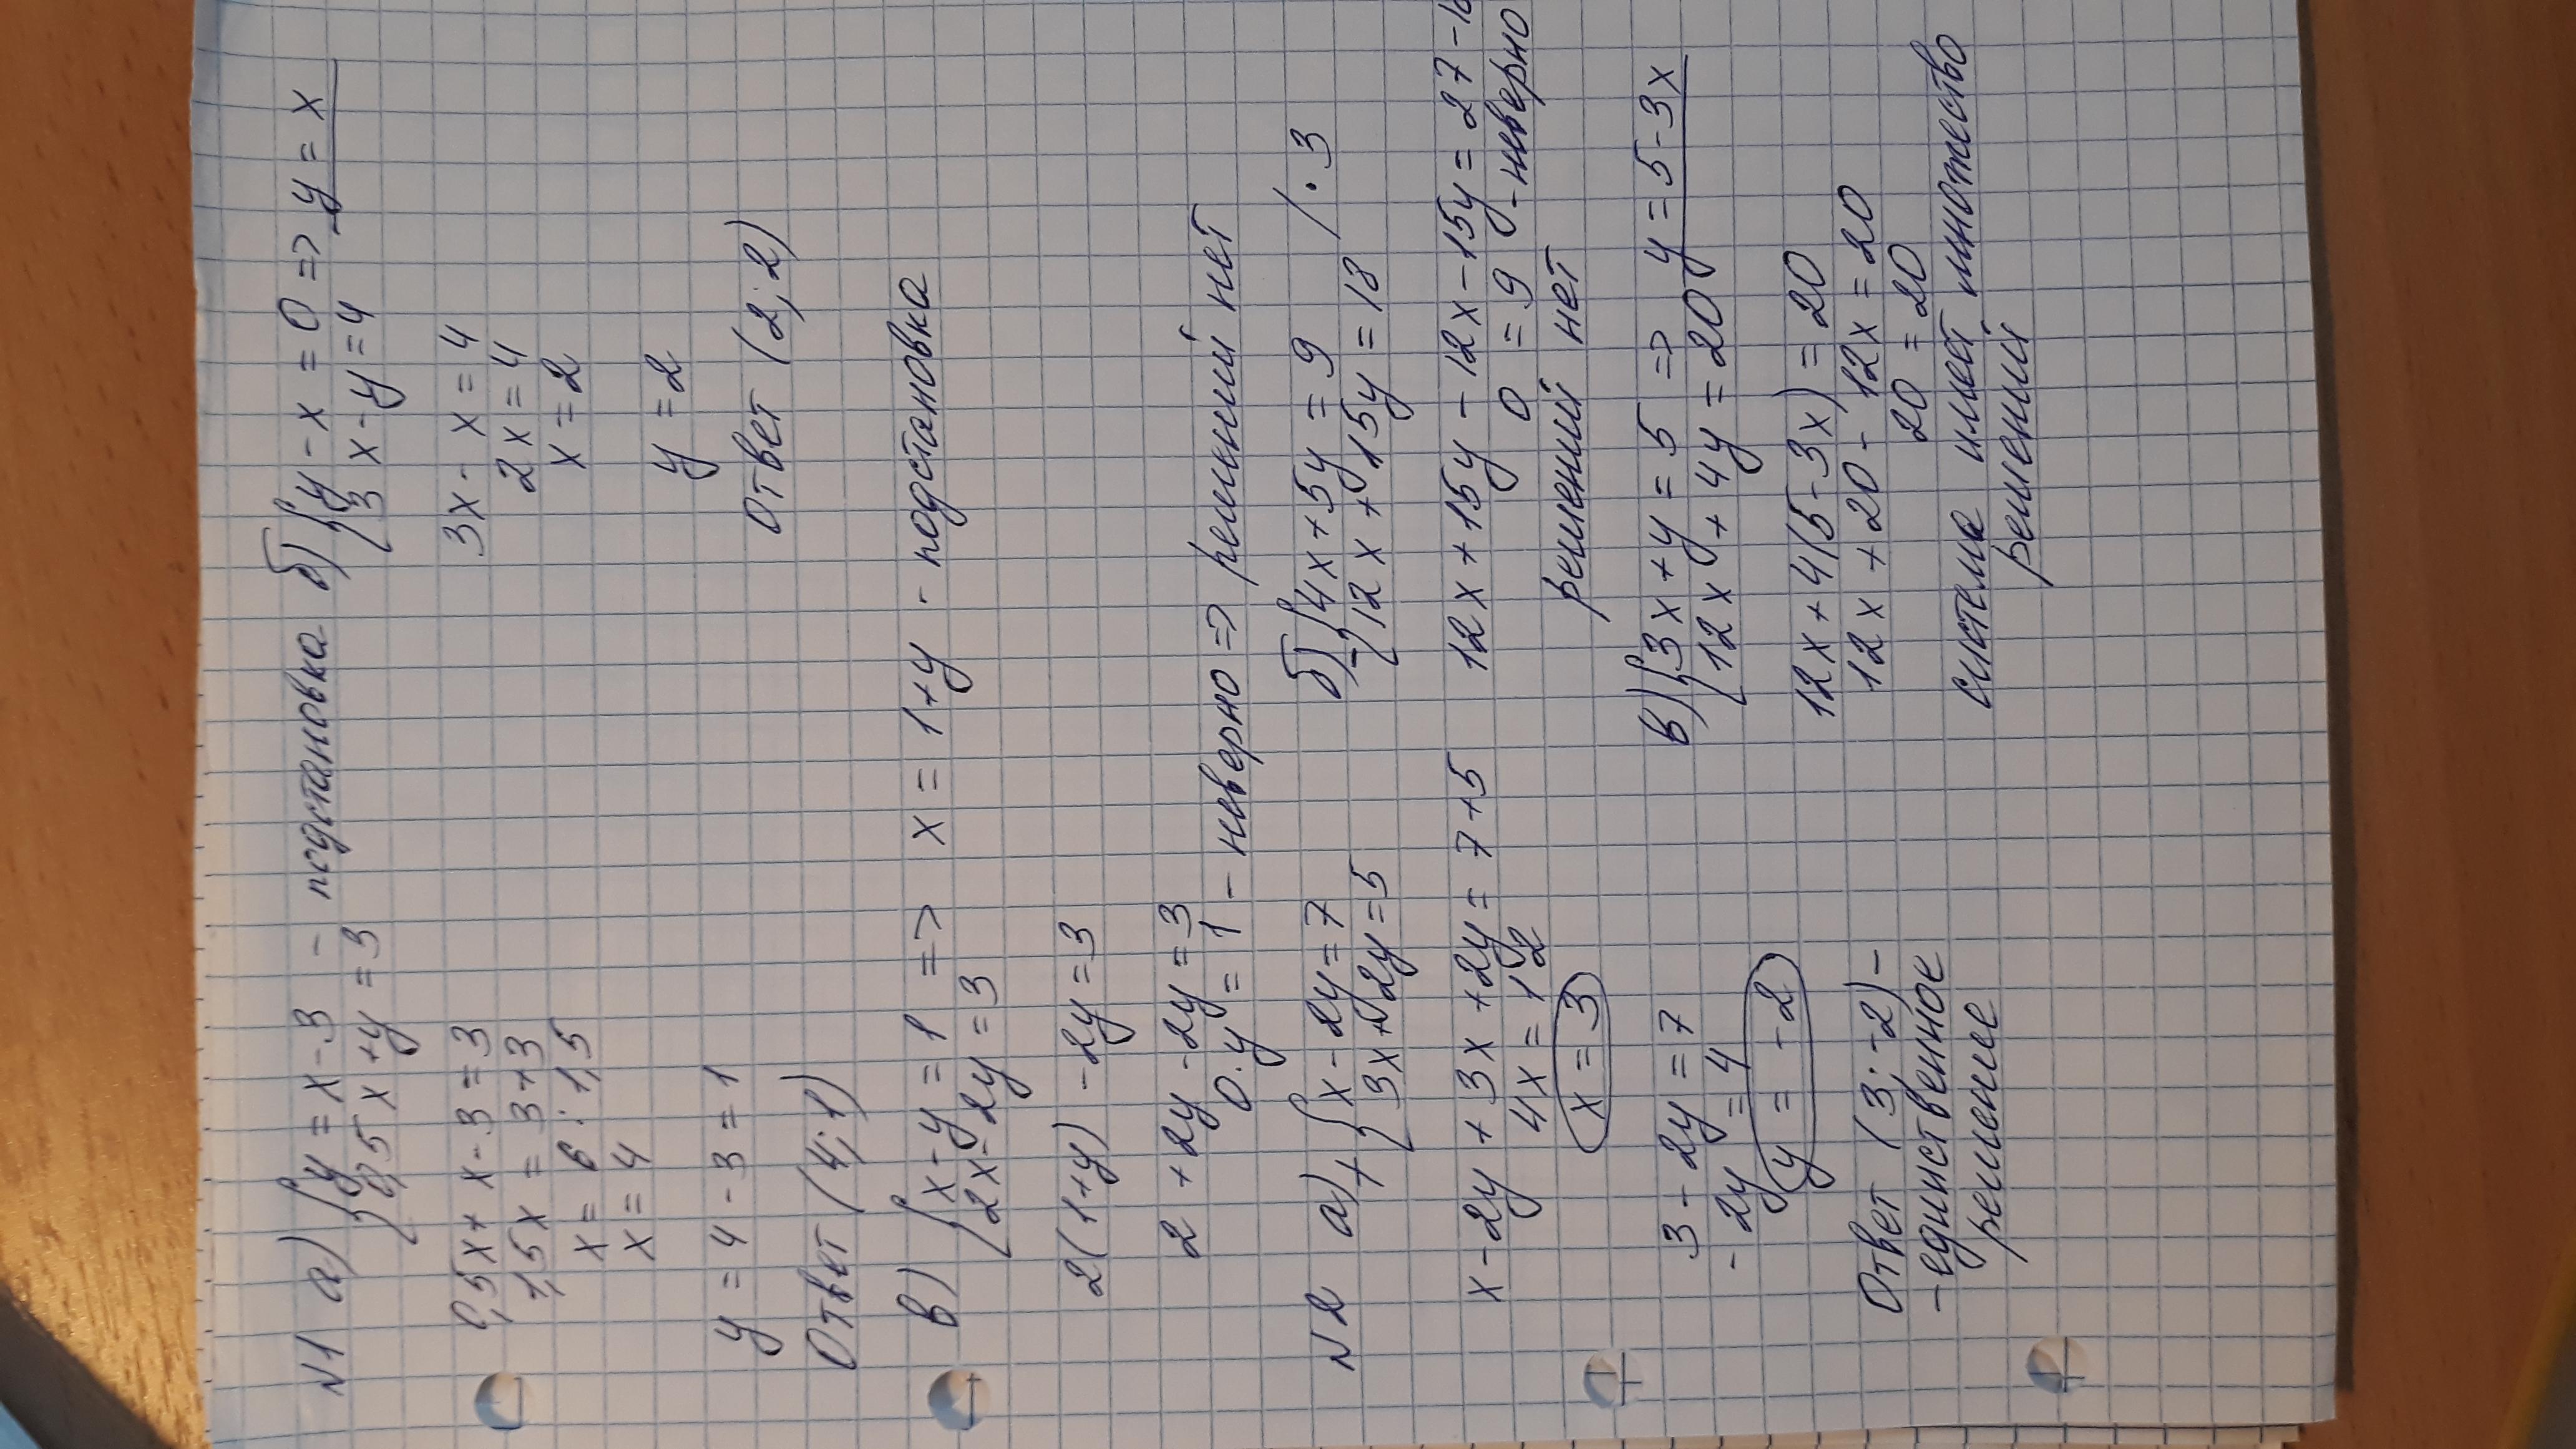 N1 а) { y = x - 3 - подстановка
0,5x + y = 3
0,5x + x - 3 = 3
1,5x = 3 + 3
x = 6 : 1,5
x = 4
y = 4 - 3 = 1
Ответ (4; 1)
б) { y - x = 0 => y = x
3x - y = 4
3x - x = 4
2x = 4
x = 2
y = 2
Ответ (2; 2)
в) { x - y = 1 => x = 1 + y - подстановка
2x - 2y = 3
2(1+y) - 2y = 3
2 + 2y - 2y = 3
0·y = 1 - неверно => решений нет
N2 а) + { x - 2y = 7
3x + 2y = 5
x - 2y + 3x + 2y = 7 + 5
4x = 12
x = 3
3 - 2y = 7
- 2y = 4
y = -2
Ответ (3; -2) -
- единственное
решение
б) - { 4x + 5y = 9 / · 3
12x + 15y = 18
12x + 15y - 12x - 15y = 27 -
0 = 9 - неверно
решений нет
в) { 3x + y = 5 => y = 5 - 3x
12x + 4y = 20
12x + 4(5 - 3x) = 20
12x + 20 - 12x = 20
20 = 20
система имеет множество
решений